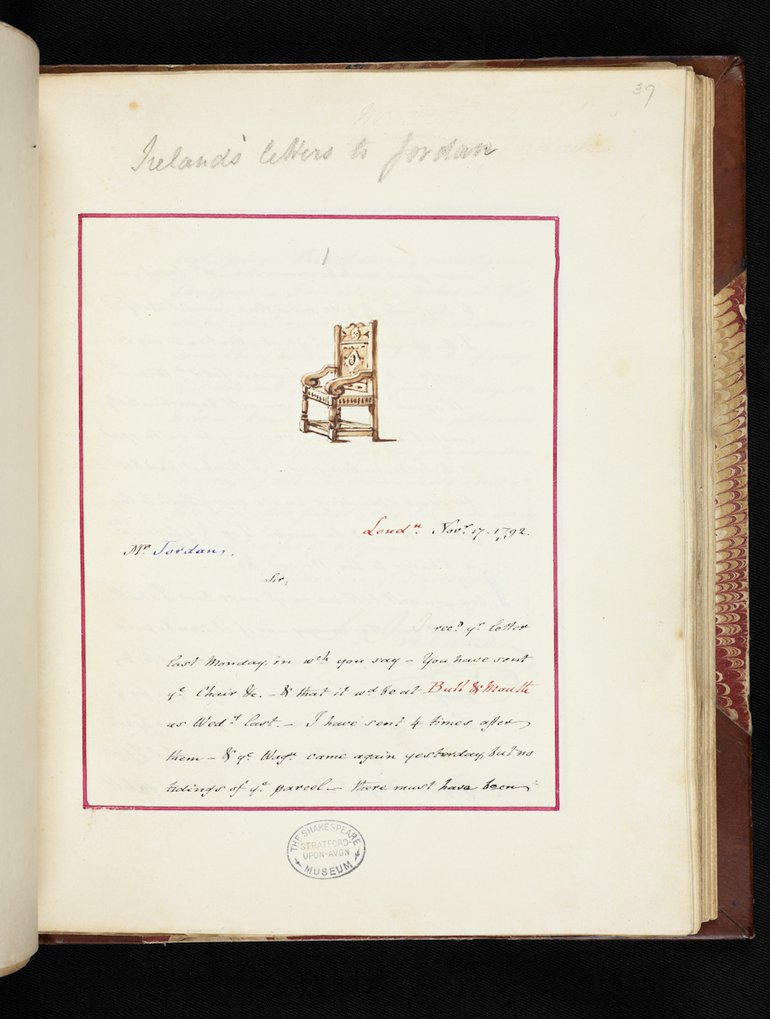 39
Ireland's letters to Jordan
1
Londⁿ. Novʳ. 17. 1792.
Mʳ Jordan,
Sir,
I recᵈ yʳ letter
last Monday, in wᶜʰ you say – You have sent
yᵉ Chair &c. – & that it wᵈ be at Bull & Mouth
as Wedʸ last. – I have sent 4 times after
them – & yᵉ Wagⁿ came again yesterday, but no
tidings of yᵉ parcel – there must have been
THE SHAKESPEARE
STRATFORD-
UPON-AVON
MUSEUM